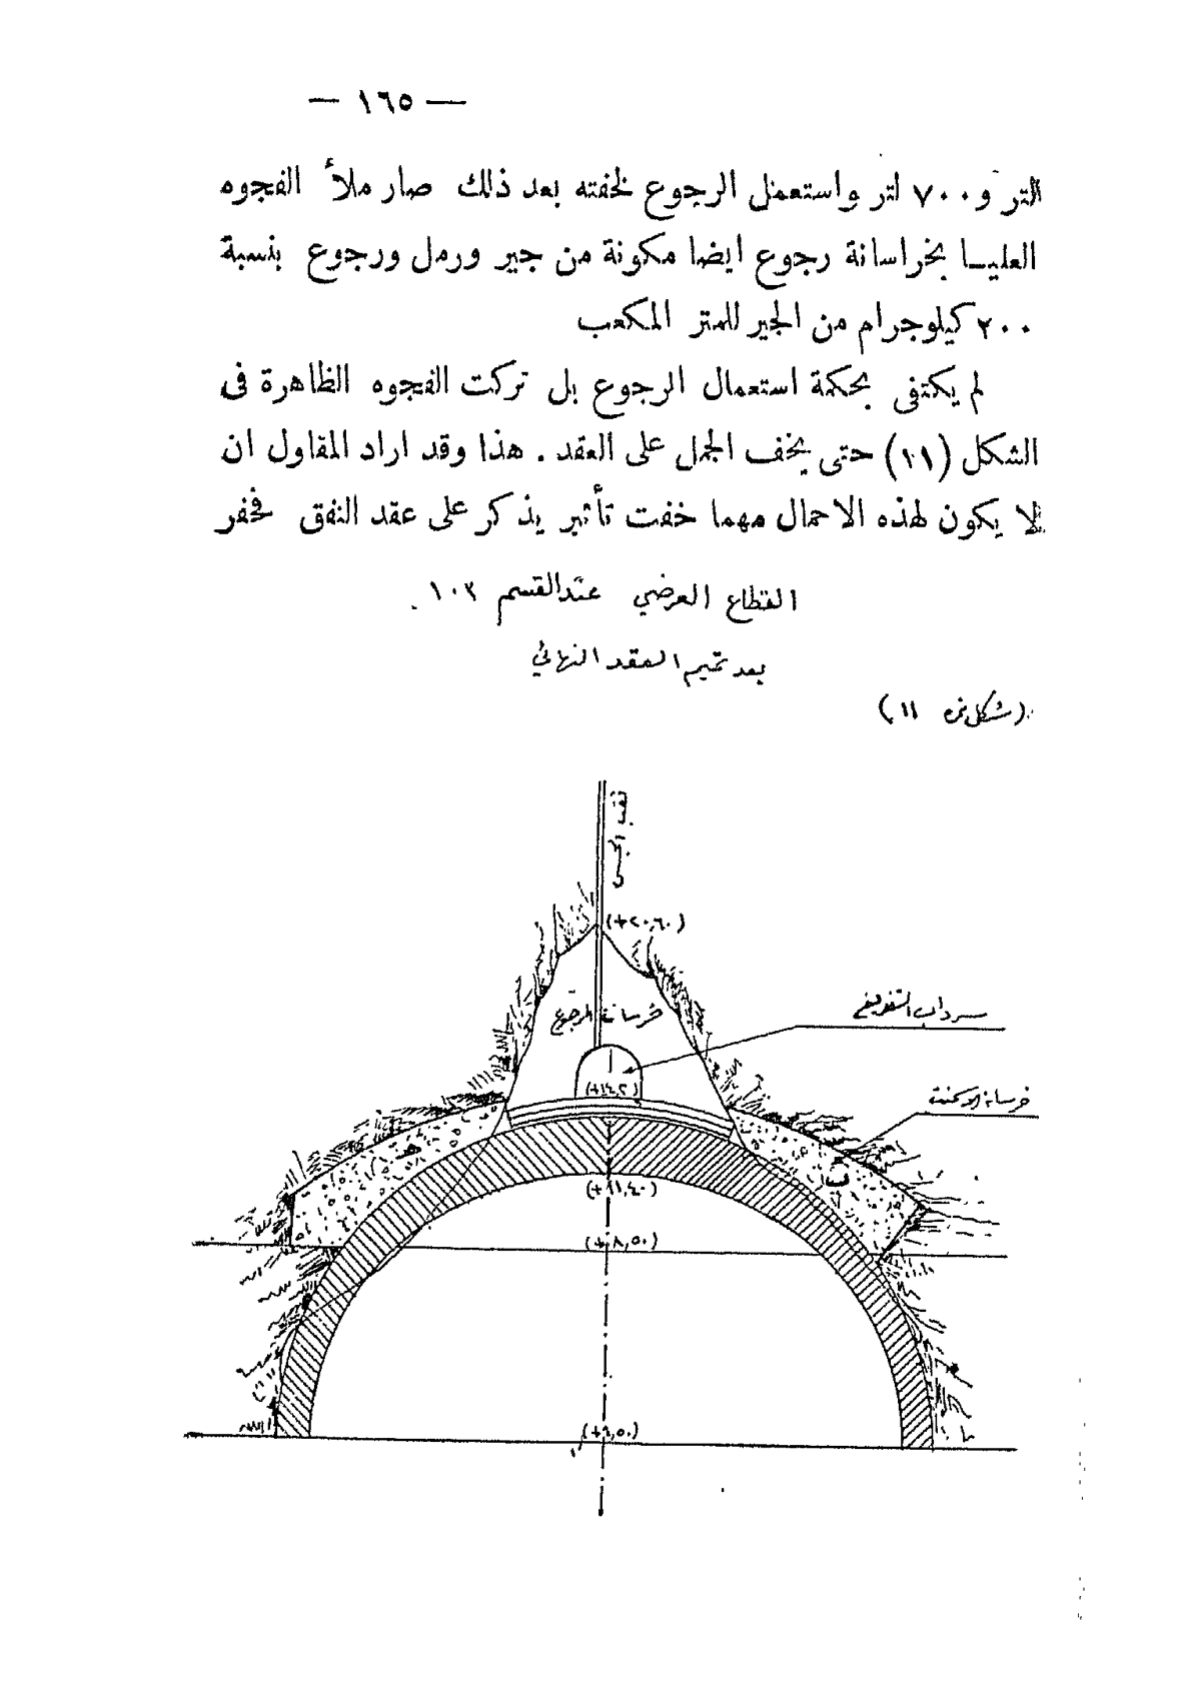 — ١٦٥ —
لتر و ٧٠٠ لتر واستعمل الرجوع لخفته بعد ذلك صار ملأ الفجوه
العليـا بخراسانة رجوع ايضا مكونة من جير ورمل ورجوع بنسبة
٢٠٠ كيلوجرام من الجير للمتر المكعب
لم يكتفى بحكمة استعمال الرجوع بل تركت الفجوه الظاهرة فى
الشكل (١١) حتى يخف الحمل على العقد . هذا وقد اراد المقاول ان
لا يكون لهذه الاحمال مهما خفت تأثير يذكر على عقد النفق فحفر
القطاع العرضي عند القسم ١٠٣
بعد تتميم العقد النهائي
(شكل نمره ١١)
ثقب الجس
(+٢٠,٦٠)
خرسانة الرجوع
سرداب التفريغ
(+١٤,٢)
خرسانة الدكنت
(+١١,٤٠)
(+٨,٥٠)